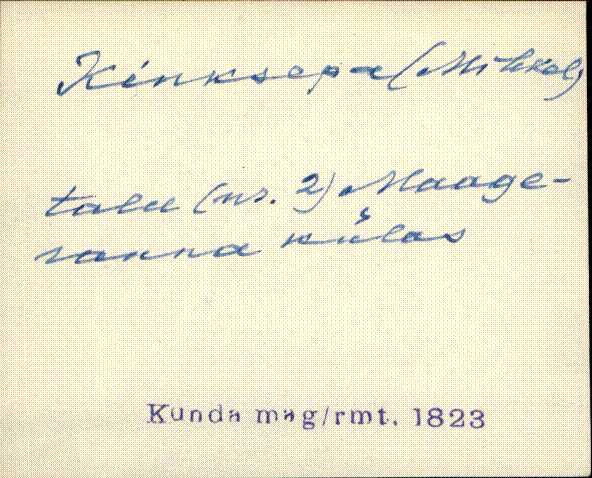 Kinksepa (Mihkel)
talu (nr. 2) Maage-
ranna külas
Kunda mag/rmt. 1823